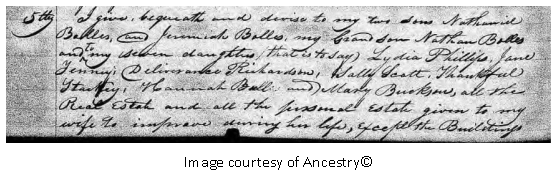 5thly "I give, bequeath and devise to my two sons Nathaniel
Bolles, and Jeremiah Bolles, my Grandson Nathan Bolles
and to my seven daughters (that is to say) Lydia Phillips, Jane
Tenney, Deliverance Richardson, Sally Scott, Thankful
Starkey, Hannah Ball and Mary Buckson, all the
Real Estate and all the personal Estate given to my
wife to improve during her life, except the Buildings
Image courtesy of Ancestry©